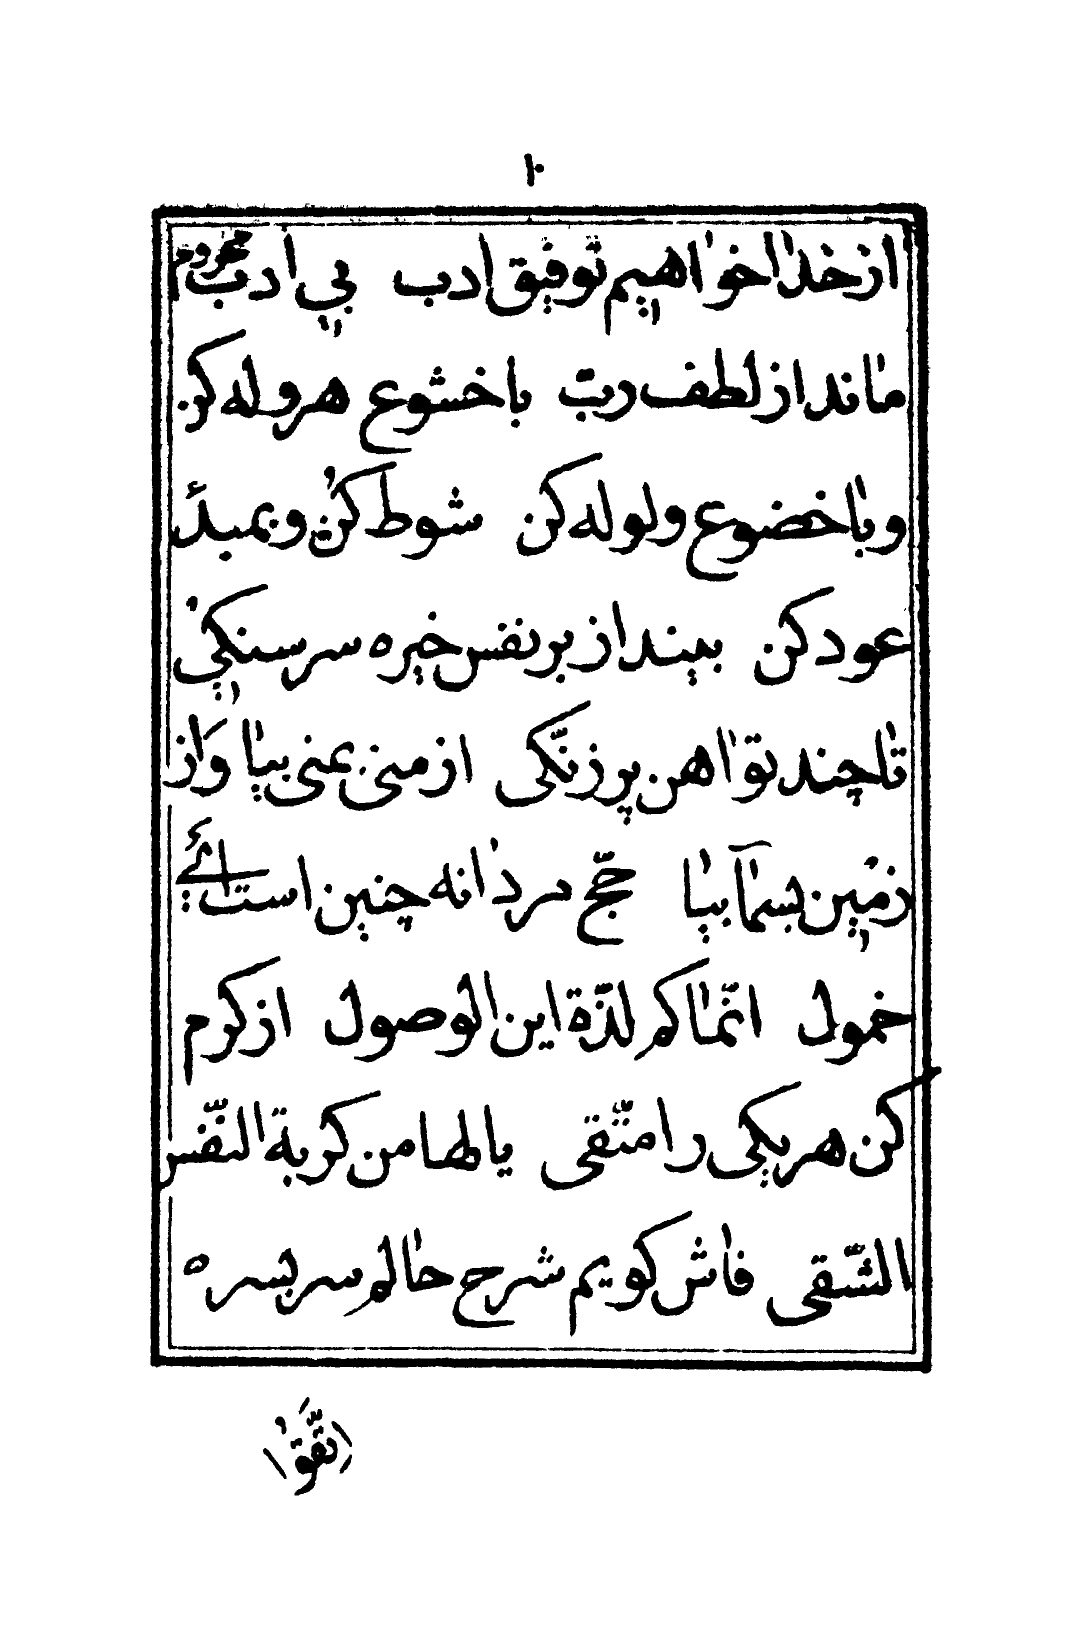 ١٠
از خدا خواهیم توفیق ادب بی ادب محروم
ماند از لطف ربّ با خشوع هروله کن
و با خضوع ولوله کن شوط کن و بمبدأ
عود کن بینداز بر نفس خیره سر سنکی
تا چند تو اهن پرزنکی از منی بمنی بیا و از
زمین بسما بیا حجّ مردانه چنین است ائے
خمول انّما کم لذّة این الوصول از کرم
کن هریکی را متّقی یا لها من کربة النّفس
الشّقی فاش کویم شرح حالم سر بسره
اتّقوا